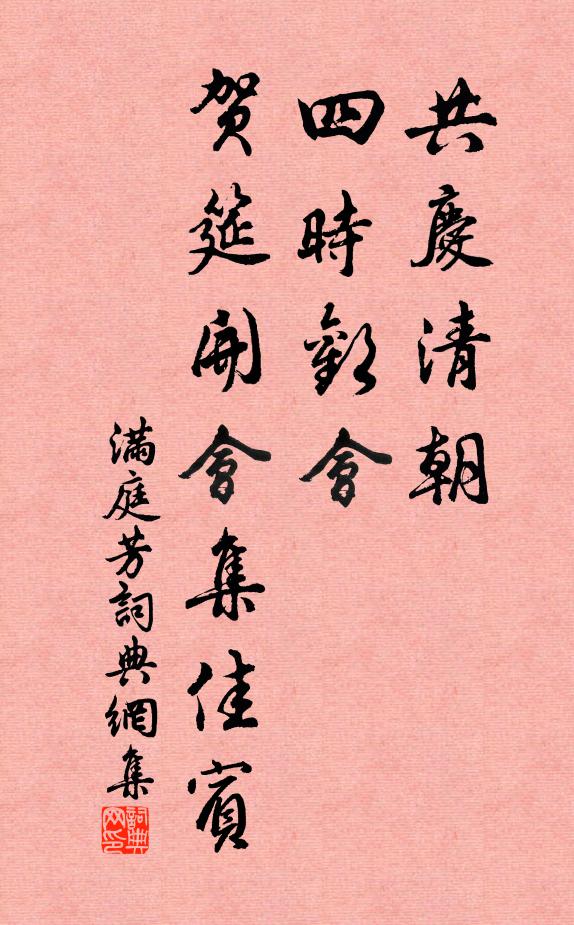 共慶清朝
四時歡會
贺筵開會集佳賓
滿庭芳詞典網集
詞典
网印